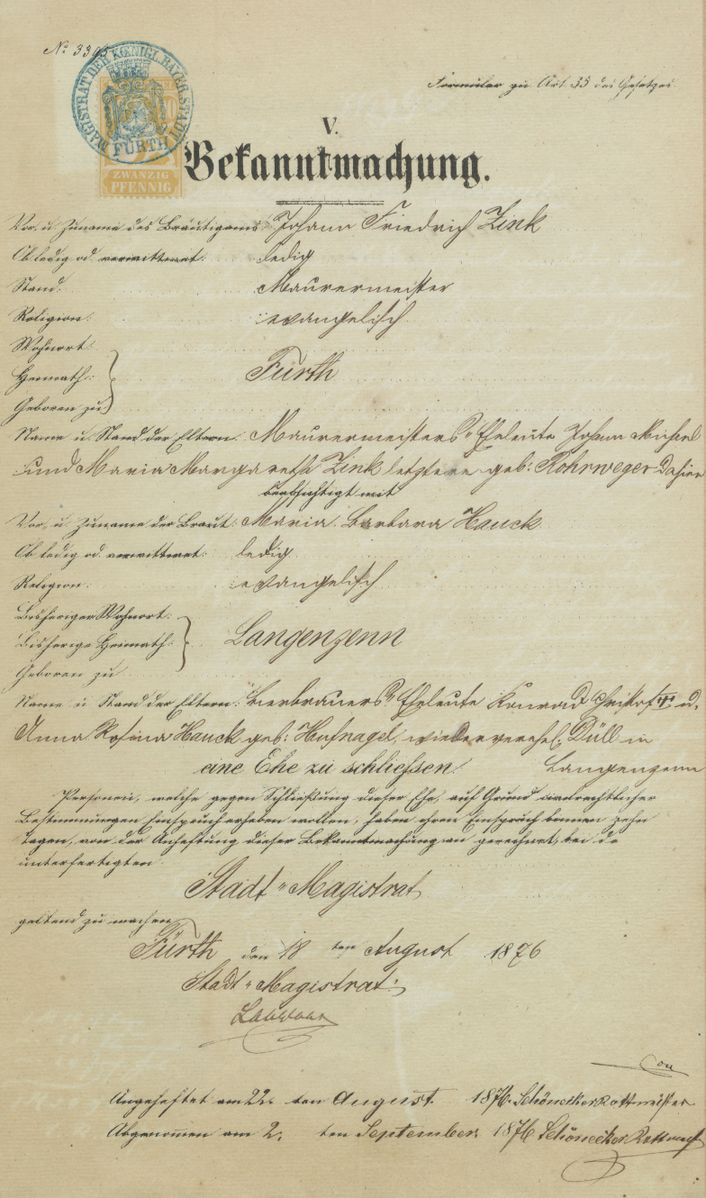 No 3305
MAGISTRAT DER KOENIGL. BAYER. STADT FÜRTH
ZWANZIG PFENNIG
Formular zu Art. 35 des Gesetzes.
V.
Bekanntmachung.
Vor. u. Zuname des Bräutigams Johann Friedrich Zink
Ob ledig od. verwittwet: ledig
Stand: Maurermeister
Religion: evangelisch
Wohnort:
Heimath: Fürth
Geboren zu
Name u. Stand der Eltern. Maurermeisters-Eheleute Johann Michael
und Maria Margaretha Zink letztere geb: Rohrweger dahier
beabsichtigt mit
Vor. u. Zuname der Braut: Maria Barbara Hauck
Ob ledig od. verwittwet: ledig
Religion: evangelisch
Bisheriger Wohnort:
Bisherige Heimath: Langenzenn
Geboren zu
Name u. Stand der Eltern: Bierbrauers-Eheleute Konrad u.
Anna Rosina Hauck geb: Hufnagel, wiederverehel. Düll in
eine Ehe zu schliessen. Langenzenn
Personen, welche gegen Schließung dieser Ehe, auf Grund civilrechtlicher
Bestimmungen Einspruch erheben wollen, haben ihren Einspruch binnen zehn
Tagen, von der Anheftung dieser Bekanntmachung an gerechnet, bei de
unterfertigten
Stadt-Magistrat
geltend zu machen.
Fürth den 18 ten August 1876
Stadt-Magistrat:
Angeheftet am 22. ten August 1876. Schönecker Rottmeister
Abgenommen am 2. ten September 1876 Schönecker Rottm